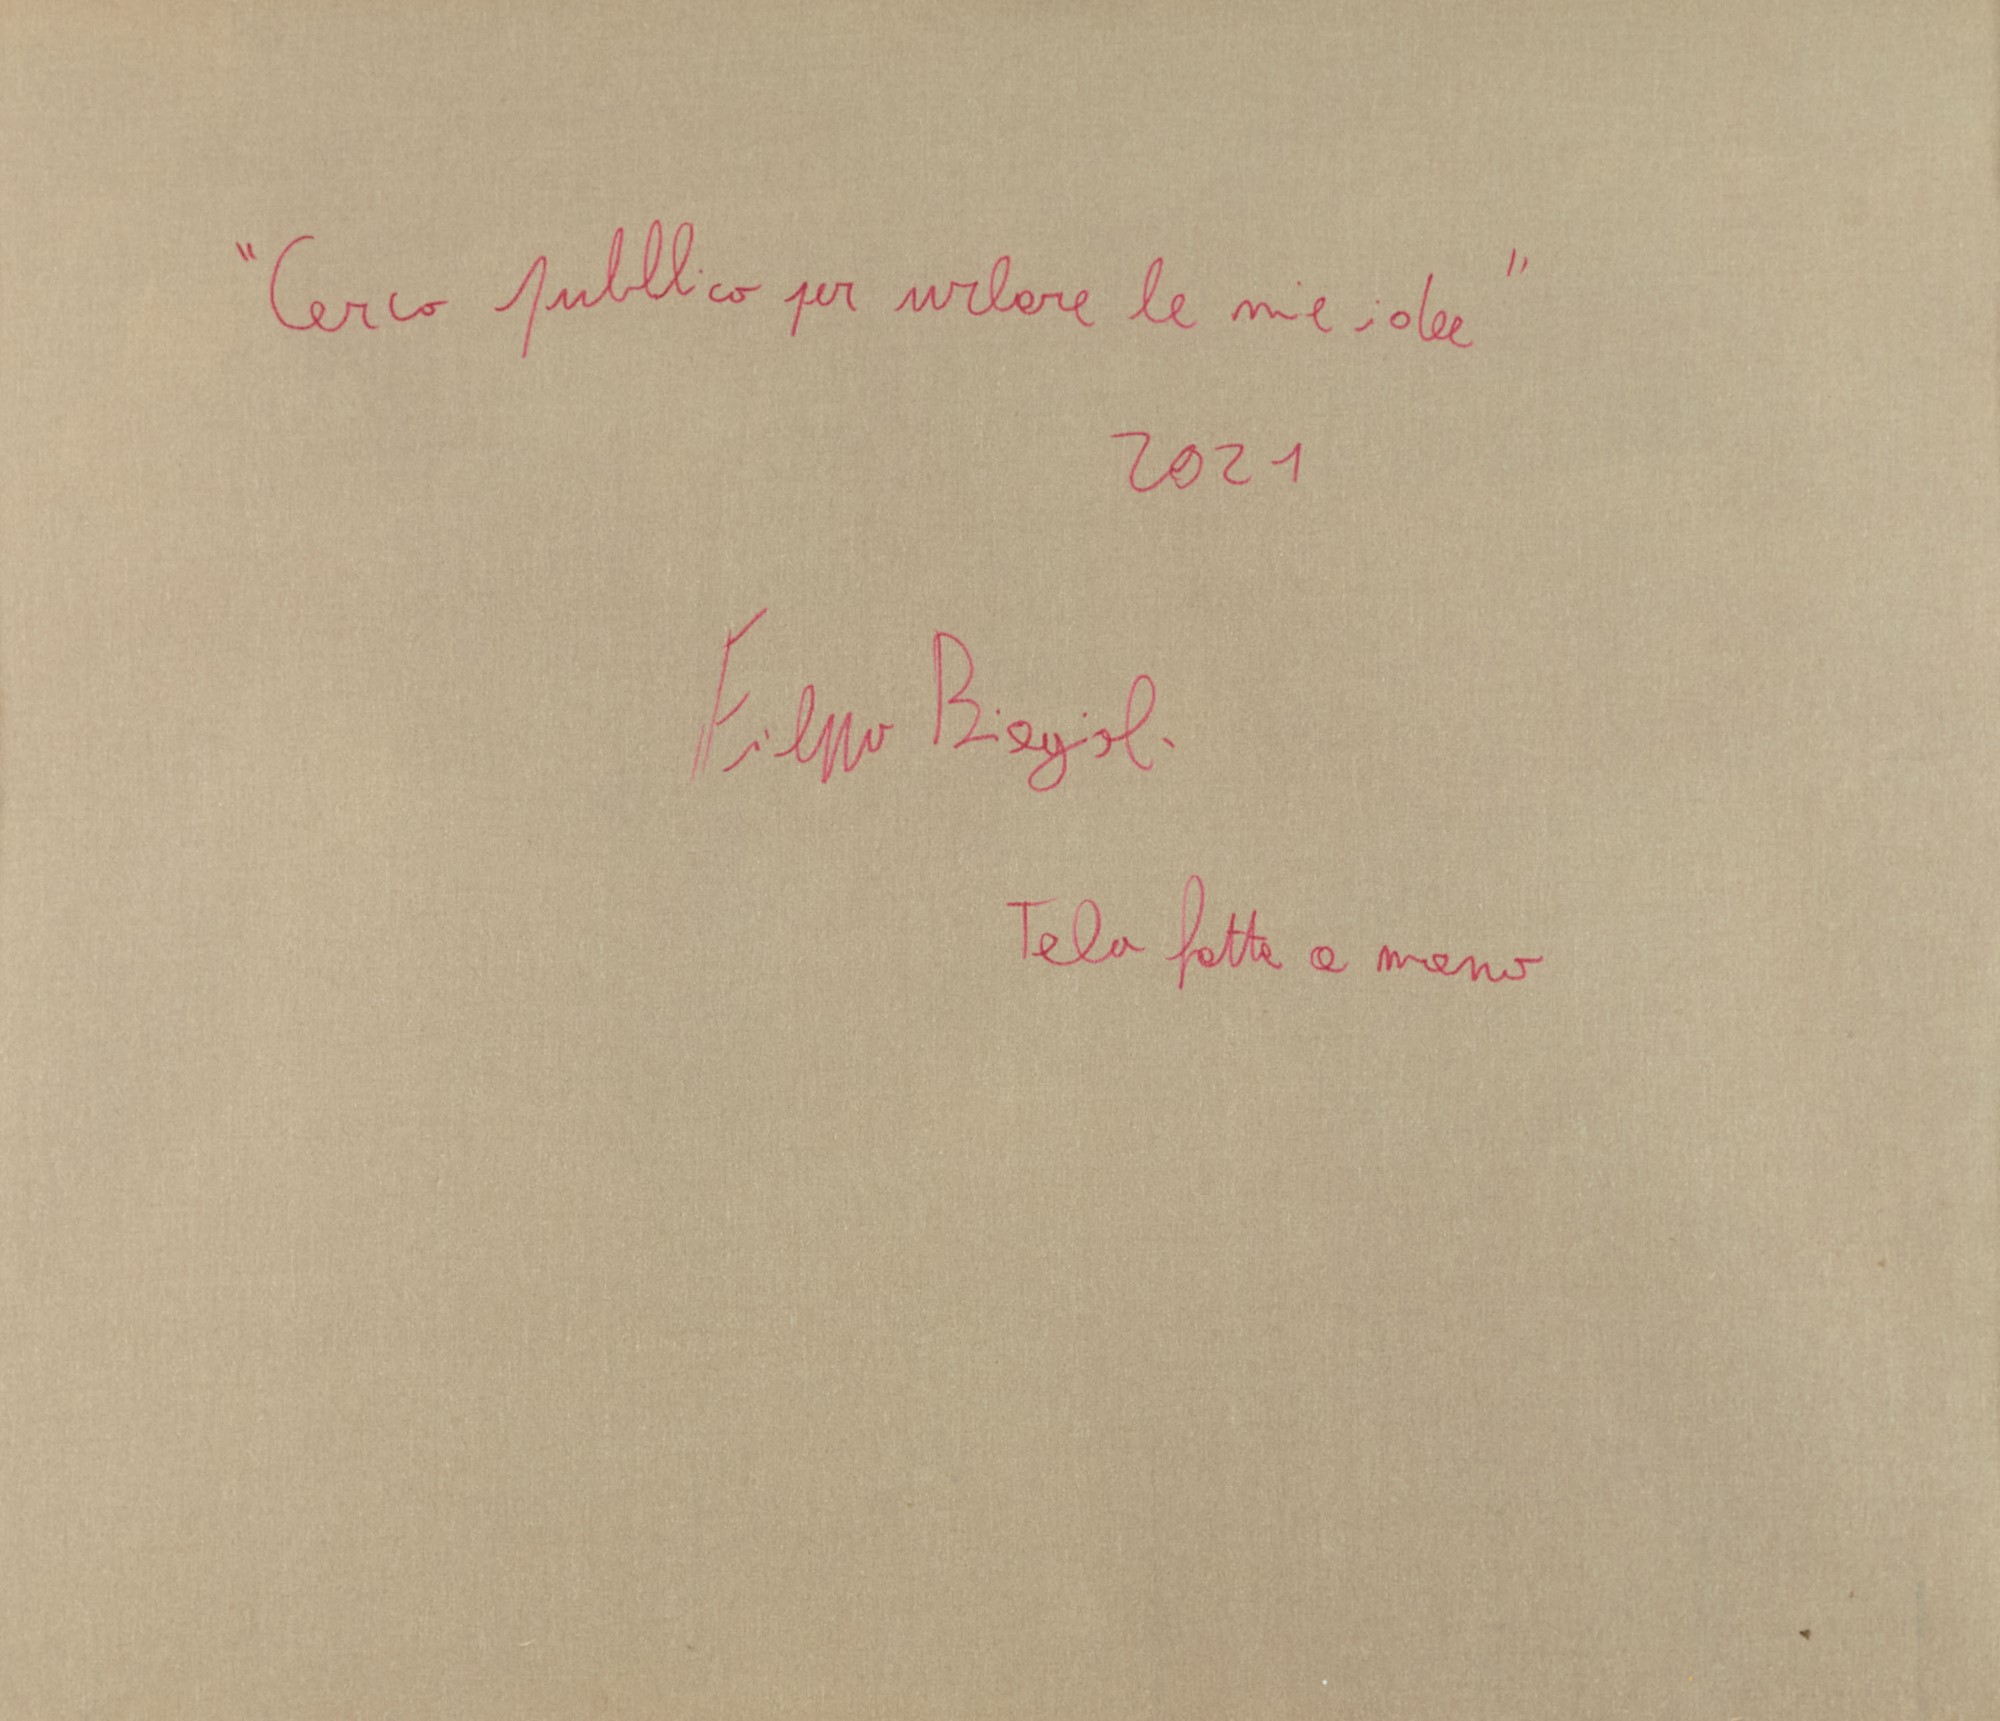 "Cerco pubblico per urlare le mie idee"
2021
Filippo Biagioli
Tela fatta a mano